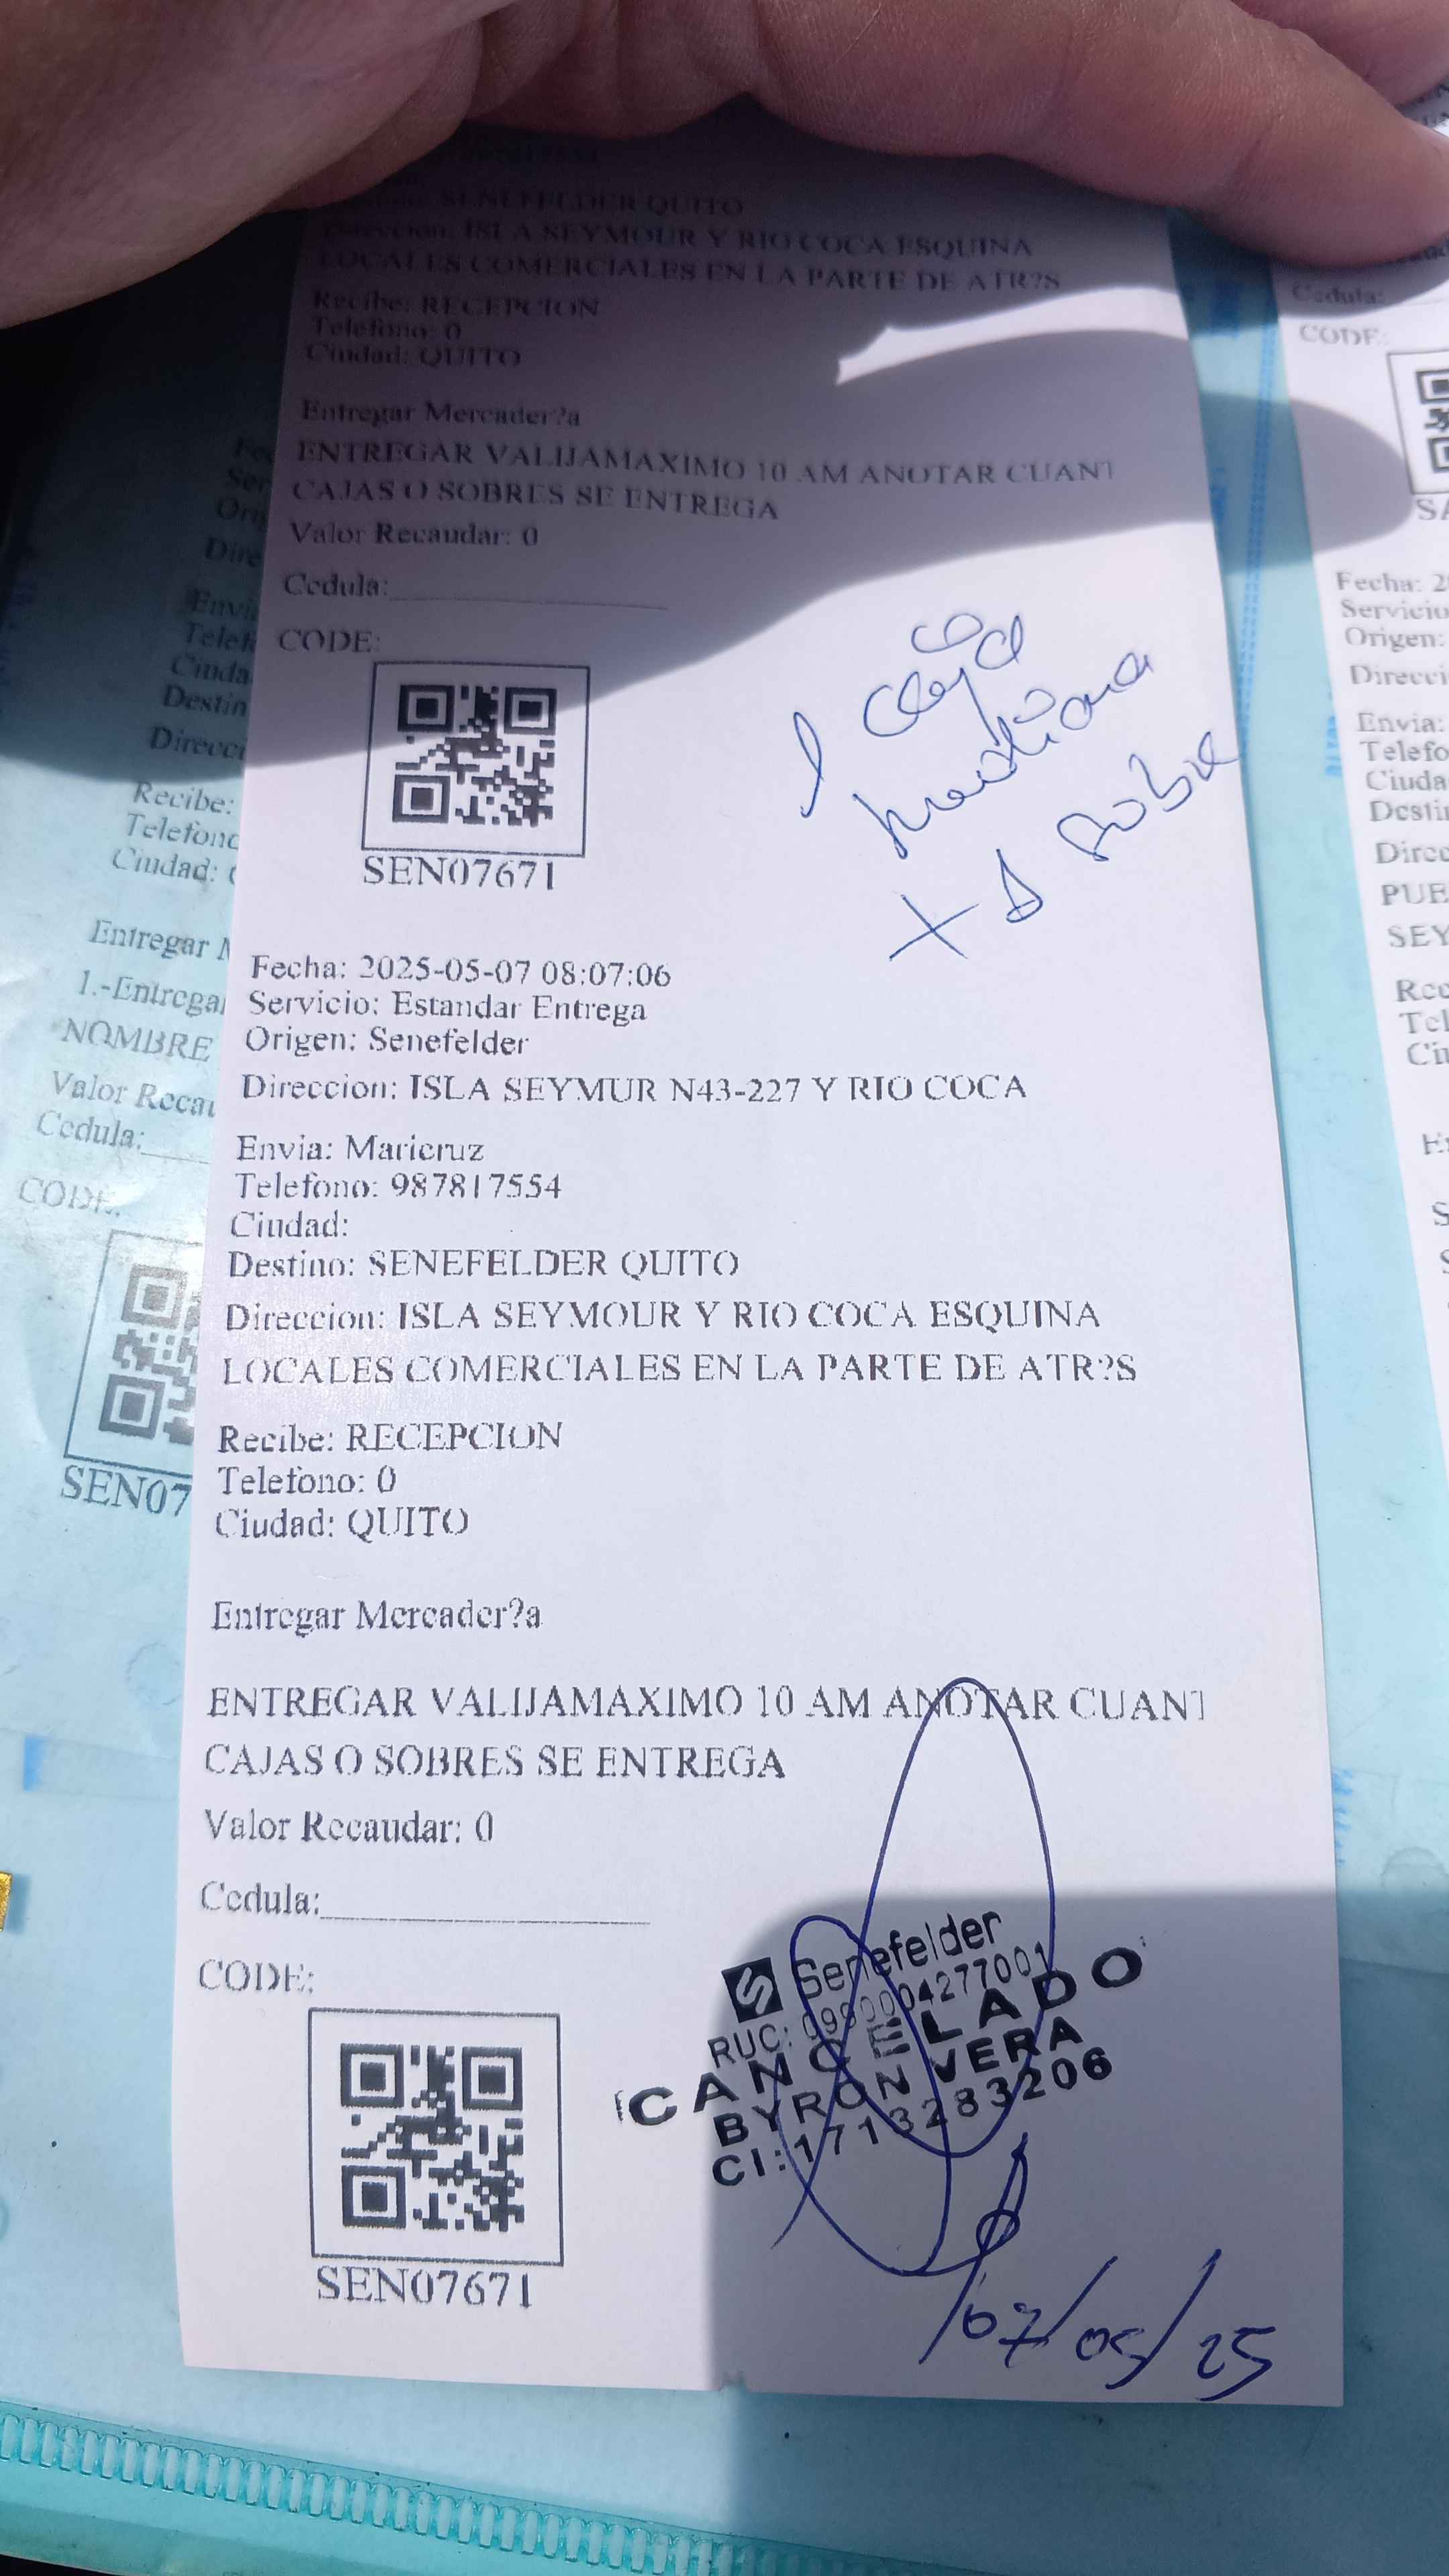 SENEFELDER QUITO
Direccion: ISLA SEYMOUR Y RIO COCA ESQUINA
LOCALES COMERCIALES EN LA PARTE DE ATR?S
Recibe: RECEPCION
Telefono: 0
Ciudad: QUITO
Entregar Mercader?a
ENTREGAR VALIJAMAXIMO 10 AM ANOTAR CUANT
CAJAS O SOBRES SE ENTREGA
Valor Recaudar: 0
Cedula:
CODE:
SEN07671
1 caja
mediana
+ 1 sobre
Fecha: 2025-05-07 08:07:06
Servicio: Estandar Entrega
Origen: Senefelder
Direccion: ISLA SEYMUR N43-227 Y RIO COCA
Envia: Maricruz
Telefono: 987817554
Ciudad:
Destino: SENEFELDER QUITO
Direccion: ISLA SEYMOUR Y RIO COCA ESQUINA
LOCALES COMERCIALES EN LA PARTE DE ATR?S
Recibe: RECEPCION
Telefono: 0
Ciudad: QUITO
Entregar Mercader?a
ENTREGAR VALIJAMAXIMO 10 AM ANOTAR CUANT
CAJAS O SOBRES SE ENTREGA
Valor Recaudar: 0
Cedula:
CODE:
SEN07671
Senefelder
RUC: 0990004277001
CANCELADO
BYRON VERA
CI:1713283206
07/05/25
Recibe:
Telefono
Ciudad:
Entregar
1.-Entregar
NOMBRE
Valor Recau
Cedula:
CODE:
SEN07
Cedula:
CODE:
Fecha: 2
Servicio
Origen:
Direcci
Envia:
Telefo
Ciuda
Destin
Direc
PUE
SEY
Rec
Tel